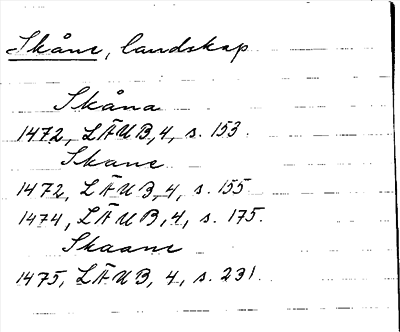 Skåne, landskap
Skåna
1472, LÄUB, 4, s. 153.
Skane
1472, LÄUB, 4, s. 155
1474, LÄUB, 4, s. 175.
Skaane
1475, LÄUB, 4, s. 231.